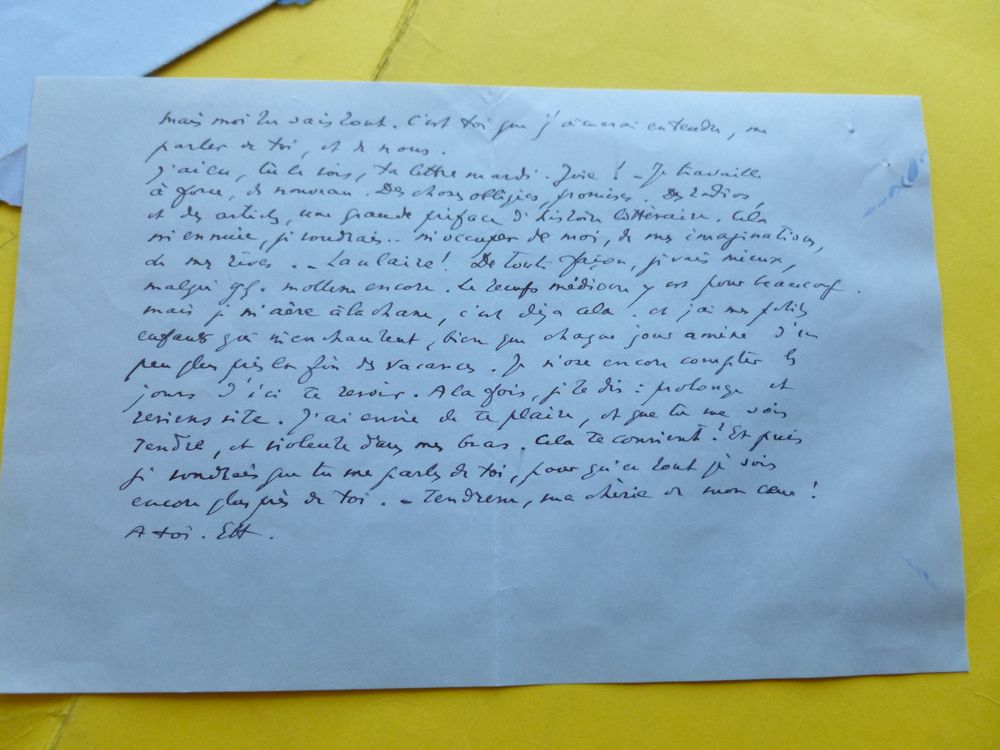 mais moi tu sais tout. C'est toi que j'aimerai entendre, me
parler de toi, et de nous.
J'ai eu, tu le vois, ta lettre mardi. Joie ! – Je travaille
à force, de nouveau. Des choses obligées, promises. Des radios,
et des articles, une grande préface d'histoire littéraire. Cela
m'ennuie, je voudrais.. m'occuper de moi, de mes imaginations,
de mes rêves. – De toute façon, je vais mieux,
malgré qq. encore. Le temps médiocre y est pour beaucoup.
mais je m'aère à la chasse, c'est déjà cela. et j'ai mes petits
enfants qui m'enchantent, bien que chaque jour amène d'un
peu plus près la fin des vacances. Je n'ose encore compter les
jours d'ici te revoir. A la fois, je te dis : prolonge et
reviens vite. J'ai envie de te plaire, et que tu me sois
tendre, et violente dans mes bras. Cela te convient ! Et puis
je voudrais que tu me parles de toi, pour qu'en tout je sois
encore plus près de toi. – Tendrem, ma chérie de mon cœur !
A toi.